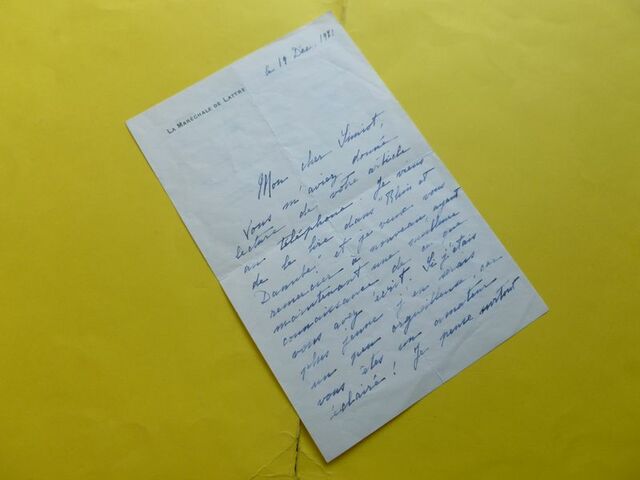 le 19 Dec. 1981
LA MARÉCHALE DE LATTRE
Mon cher
Vous m'aviez donné
lecture de votre article
au téléphone. Je viens
de le lire dans "Rhin et
Danube" et je veux vous
remercier à nouveau ayant
maintenant une meilleure
connaissance de ce que
vous avez écrit. Si j'étais
plus jeune j'en serais
un peu orgueilleuse, car
vous êtes un amateur
éclairé! Je pense surtout